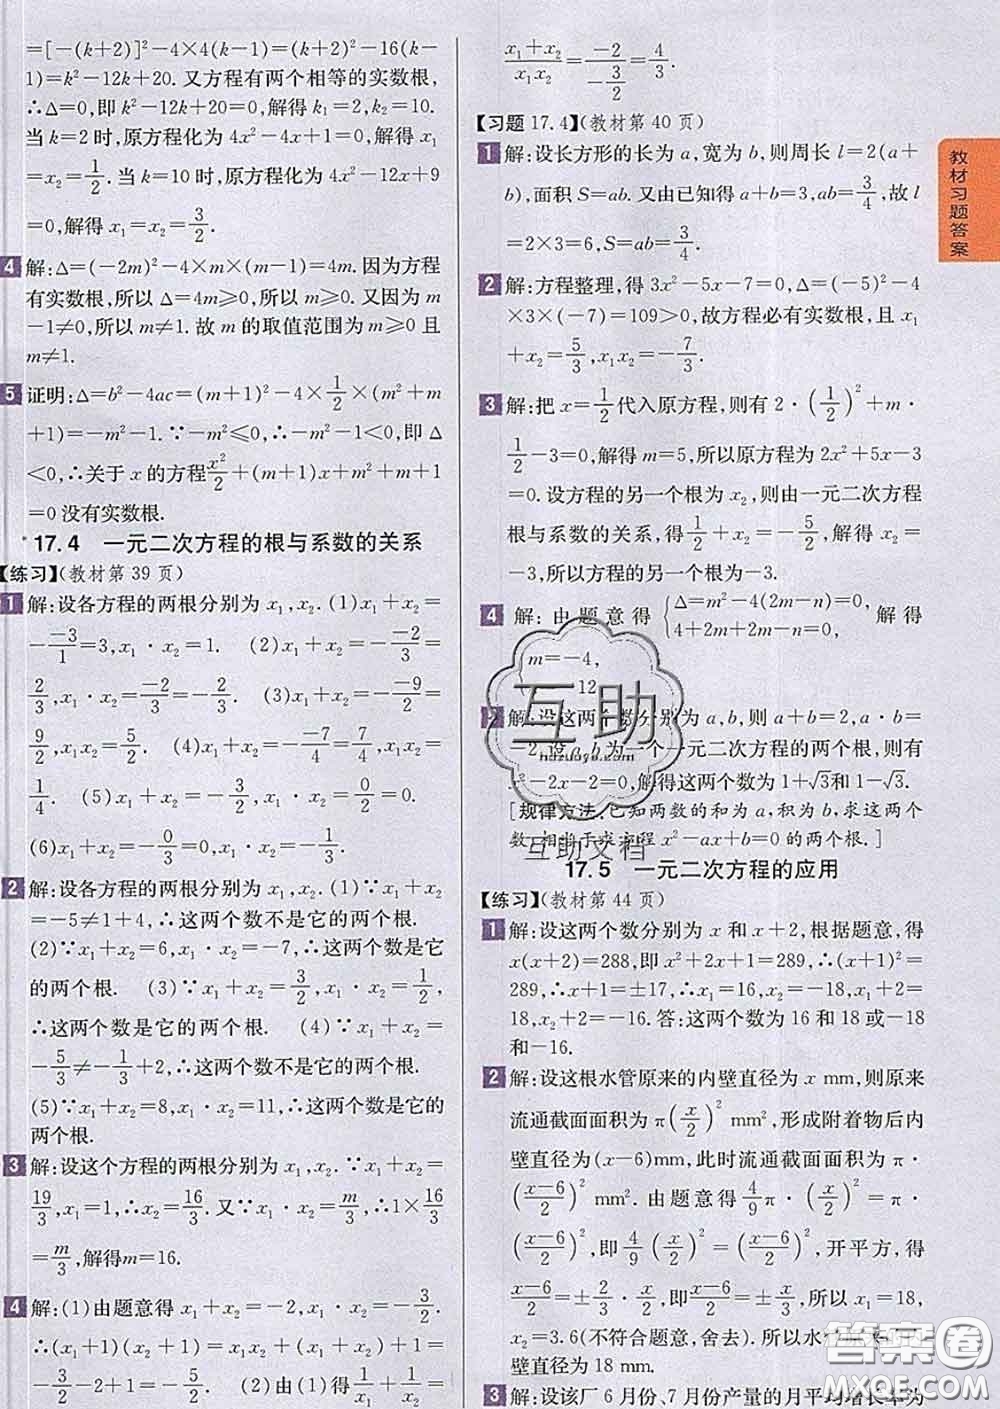 =[-(k+2)]²-4×4(k-1)=(k+2)²-16(k-
1)=k²-12k+20. 又方程有两个相等的实数根,
∴Δ=0,即 k²-12k+20=0,解得 k₁=2,k₂=10.
当 k=2 时,原方程化为 4x²-4x+1=0,解得 x₁
=x₂=1/2. 当 k=10 时,原方程化为 4x²-12x+9
=0,解得 x₁=x₂=3/2.
4 解:Δ=(-2m)²-4×m×(m-1)=4m. 因为方程
有实数根,所以 Δ=4m≥0,所以 m≥0. 又因为 m
-1≠0,所以 m≠1. 故 m 的取值范围为 m≥0 且
m≠1.
5 证明:Δ=b²-4ac=(m+1)²-4×1/2×(m²+m
+1)=-m²-1. ∵-m²≤0,∴-m²-1<0,即 Δ
<0,∴关于 x 的方程x²/2+(m+1)x+m²+m+1
=0 没有实数根.
17.4 一元二次方程的根与系数的关系
【练习】(教材第 39 页)
1 解:设各方程的两根分别为 x₁,x₂. (1)x₁+x₂=
-(-3)/1=3,x₁·x₂=1. (2)x₁+x₂=-(-2)/3=
2/3,x₁·x₂=-2/3=-2/3. (3)x₁+x₂=-(-9)/2=
9/2,x₁x₂=5/2. (4)x₁+x₂=-(-7)/4=7/4,x₁x₂=
1/4. (5)x₁+x₂=-(-3)/2=3/2,x₁x₂=0/2=0.
(6)x₁+x₂=-0/3=0,x₁·x₂=-1/3.
2 解:设各方程的两根分别为 x₁,x₂. (1)∵x₁+x₂
=-5≠1+4,∴这两个数不是它的两个根.
(2)∵x₁+x₂=6,x₁·x₂=-7,∴这两个数是它
的两个根. (3)∵x₁+x₂=3/2,x₁·x₂=1/2,
∴这两个数是它的两个根. (4)∵x₁+x₂=
-5/3≠-1/3+2,∴这两个数不是它的两个根.
(5)∵x₁+x₂=8,x₁x₂=11,∴这两个数是它的
两个根.
3 解:设这个方程的两根分别为 x₁,x₂. ∵x₁+x₂=
19/3,x₁=1,∴x₂=16/3. 又∵x₁x₂=m/3,∴1×16/3
=m/3,解得m=16.
4 解:(1)由题意得 x₁+x₂=-2,x₁·x₂=-3/2.
∴(x₁+1)(x₂+1)=x₁x₂+(x₁+x₂)+1=
-3/2-2+1=-5/2. (2)由(1)得1/x₁+1/x₂=
(x₁+x₂)/(x₁x₂)=-2/(-3/2)=4/3.
【习题 17.4】(教材第 40 页)
1 解:设长方形的长为 a,宽为 b,则周长 l=2(a+
b),面积 S=ab. 又由已知得 a+b=3,ab=3/4,故 l
=2×3=6,S=ab=3/4.
2 解:方程整理,得 3x²-5x-7=0,Δ=(-5)²-4
×3×(-7)=109>0,故方程必有实数根,且 x₁
+x₂=5/3,x₁x₂=-7/3.
3 解:把 x=1/2代入原方程,则有 2·(1/2)²+m·
1/2-3=0,解得 m=5,所以原方程为 2x²+5x-3
=0. 设方程的另一个根为 x₂,则由一元二次方程
根与系数的关系,得1/2+x₂=-5/2,解得 x₂=
-3,所以方程的另一个根为-3.
4 解:由题意得{Δ=m²-4(2m-n)=0, 4+2m+2m-n=0, 解得
m=-4,
12
解:设这两个数分别为 a,b,则 a+b=2,a·b=
-2,设 a,b 为一个一元二次方程的两个根,则有
x²-2x-2=0,解得这两个数为 1+√3和 1-√3.
[规律方法:已知两数的和为 a,积为 b,求这两个
数,相当于求方程 x²-ax+b=0 的两个根.]
17.5 一元二次方程的应用
【练习】(教材第 44 页)
1 解:设这两个数分别为 x 和 x+2,根据题意,得
x(x+2)=288,即 x²+2x+1=289,∴(x+1)²=
289,∴x+1=±17,∴x₁=16,x₂=-18,x₁+2=
18,x₂+2=-16. 答:这两个数为 16 和 18 或-18
和-16.
2 解:设这根水管原来的内壁直径为 x mm,则原来
流通截面面积为 π(x/2)² mm²,形成附着物后内
壁直径为(x-6)mm,此时流通截面面积为 π·
((x-6)/2)² mm². 由题意得4/9π·(x/2)²=π·
((x-6)/2)²,即4/9(x/2)²=((x-6)/2)²,开平方,得
(x-6)/2=±2/3·x/2,即(x-6)/x=±2/3,所以 x₁=18,
x₂=3.6(不符合题意,舍去). 所以水管原来的内
壁直径为 18 mm.
3 解:设该厂 6 月份、7 月份产量的月平均增长率为
教材习题答案
互助
huzuoyo.com
互助文档
答案圈
MXQE.COM